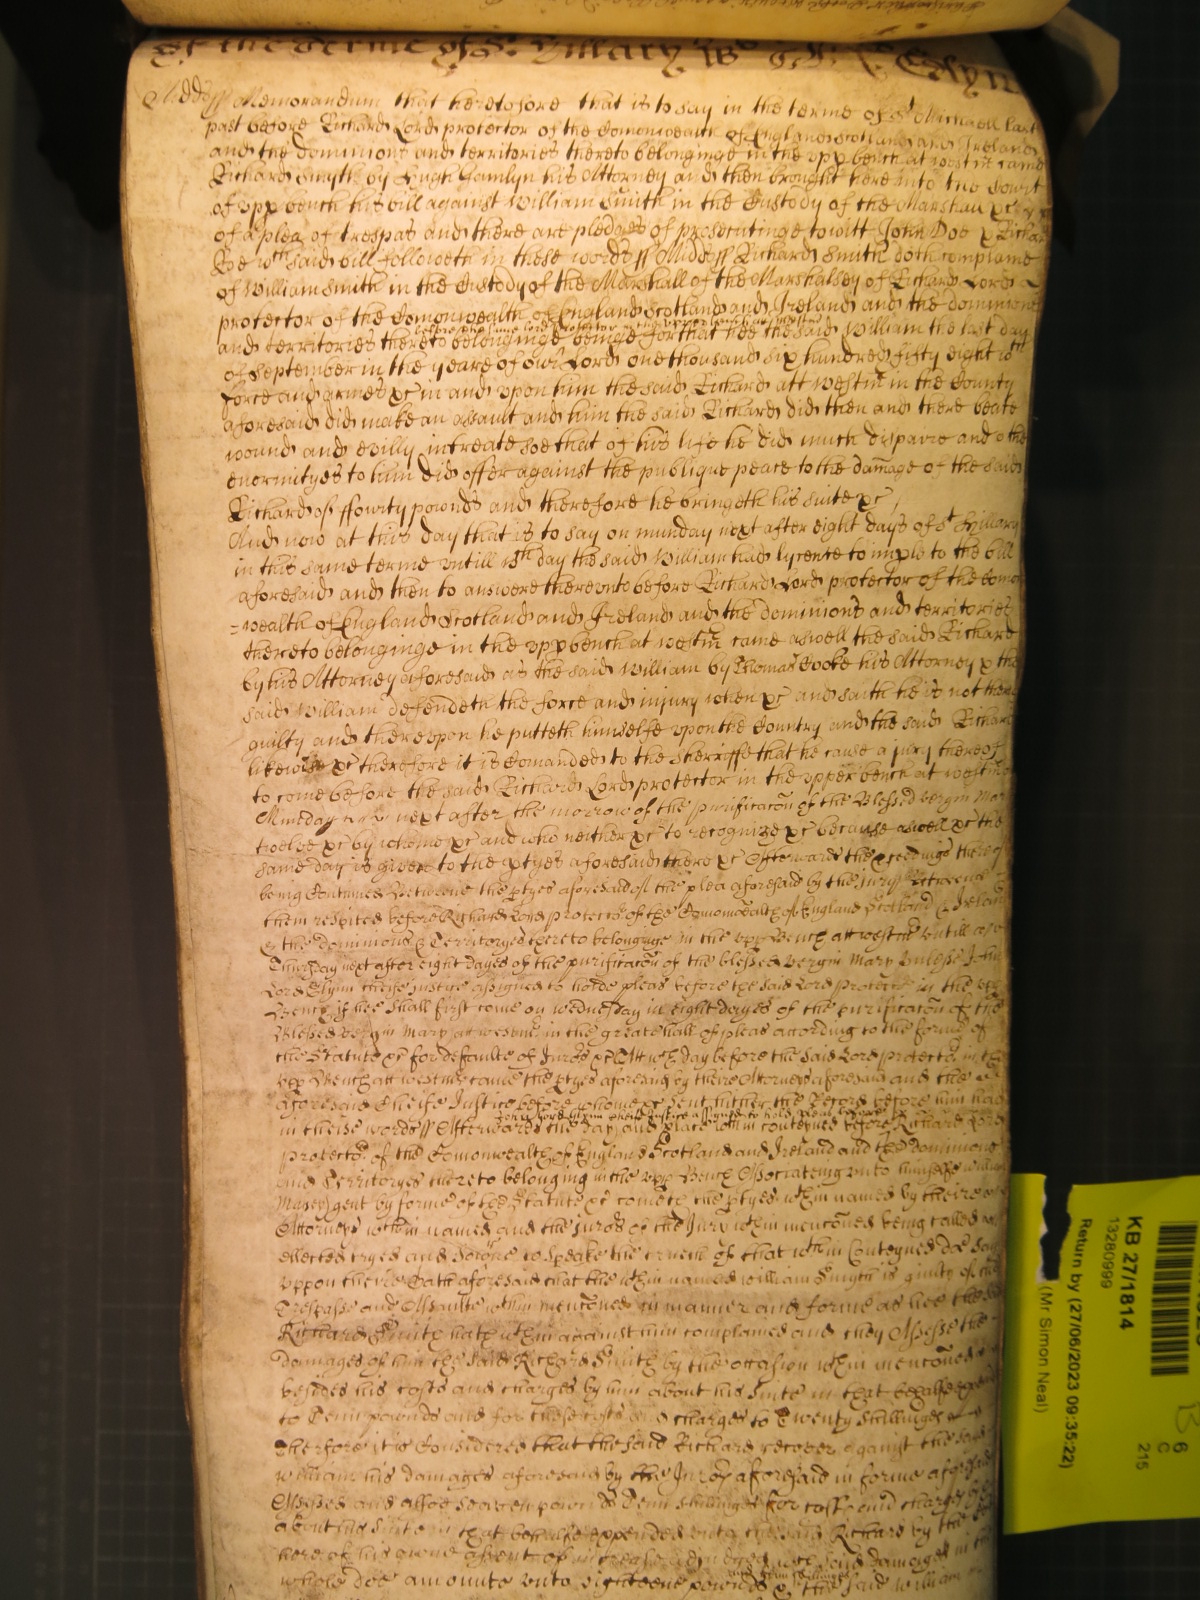 Of the Terme of St Hillary 1658
Midds ss Memorandum that heretofore that is to say in the terme of St Michaell last
past before Richard Lord protector of the Comonwealth of England Scotland and Ireland
and the dominions and territories thereto belonginge in the upp bench at westm came
Richard Smyth by Hamlyn his Attorney and then brought here into the Court
of upp bench his bill against William Smith in the Custody of the Marshall &c
of a plea of trespas and there are pledges of prosecutinge towitt John Doe & Richard
Roe wch said bill followeth in these words ss Midds ss Richard Smith doth complaine
of William Smith in the Custody of the Marshall of the Marshalsey of Richard Lord
protector of the Comonwealth of England Scotland and Ireland and the dominions
before the same lord protector in the upper bench at westm
and territories thereto belonginge beinge for that hee the said William the last day
of September in the yeare of our Lord one thousand six hundred fifty eight with
force and armes &c in and upon him the said Richard att westm in the County
aforesaid did make an assault and him the said Richard did then and there beate
wound and evilly intreate soe that of his life he did much dispaire and other
enormityes to him did offer against the publique peace to the damage of the said
Richard of fforty pounds and therefore he bringeth his suite &c
And now at this day that is to say on munday next after eight days of St Hillary
in this same terme untill wch day the said William had lycence to imple to the bill
aforesaid and then to answere thereunto before Richard Lord protector of the Comon
=wealth of England Scotland and Ireland and the dominions and territories
thereto belonginge in the upp bench at westm came aswell the said Richard
by his Attorney aforesaid as the said William by Thomas Cooke his Attorney & the
said William defendeth the force and injury when &c and saith he is not thereof
guilty and thereupon he putteth himselfe upon the Country and the said Richard
likewise &c therefore it is Comanded to the Sherriffe that he cause a jury thereof
to come before the said Richard Lord protector in the upper bench at westm on
next after the morrow of the purificacon of the Blessed vergin Mary
twelve &c by whome &c and who neither &c to recognize &c because aswell &c the
same day is given to the ptyes aforesaid there &c Afterwards the pceedings thereof
being Continued Betweene the ptyes aforesaid of the plea aforesaid by the Jury Betweene
them respited before Richard Lord protector of the Comonwealth of England Scotland & Ireland
& the dominions & Territoryes thereto belonginge in the upp Bench att westm untill
Thursday next after eight dayes of the purificacon of the blessed vergin Mary unlesse John
Lord Glynn cheife justice assigned to hold pleas before the said Lord protector in the upp
Bench if hee shall first come on wednesday in eight dayes of the purificacon of the
Blessed vergin Mary att westm in the great hall of pleas according to the forme of
the Statute &c for defaulte of Jurors &c Att wch day before the said Lord protector in the
upp Bench att westm came the ptyes aforesaid by theire Attorneys aforesaid and the
aforesaid Cheife Justice before whome &c sent hither the Record before him had
John lord Glynn cheife Justice assigned to hold pleas before
in theise words ss Afterwards the day and place within conteyned before Richard Lord
protector of the Comonwealth of England Scotland and Ireland and the dominions
and Territoryes thereto belonging in the upp Bench Associateing unto himselfe William
gent by forme of the Statute &c cometh the ptyes within named by theire
Attorneys within named and the Jurors of the Jury within mencioned being called
ellected tryed and sworne to speake the trueth of that within Conteyned doe say
uppon theire Oath aforesaid that the within named William Smyth is guilty of the
Trespasse and Assaulte within mencioned in manner and forme as hee the said
Richard Smith hath within against him complained and they Assesse the
damages of him the said Richard Smith by the occasion within mencioned
besides his costs and charges by him about his Suite in that behalfe
to Tenn pounds and for those costs and charges to Twenty Shillinges
Therefore it is Considered that the said Richard recover against the said
William his damages aforesaid by the Jury aforesaid in forme aforesaid
Assessed and alsoe seaven pounds Tenn shillinges for costs and charges
about his Suite in that behalfe expended unto the said Richard by the Court
here of his owne assent of increase adjudged wch said damages in the
and Tenn shillinges
whole doe amounte unto eighteene pounds & the said William
KB 27/1814
13280999
Return by (27/06/2023 09:35:22)
(Mr Simon Neal)
6
C
215